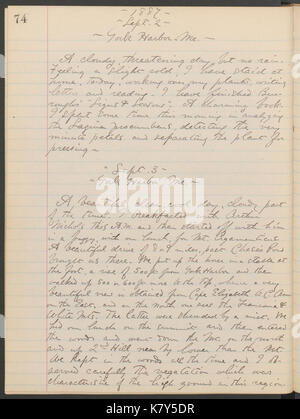 74
- 1887 -
- Sept. 2 -
- York Harbor, Me -
A cloudy, threatening day, but no rain.
Feeling a slight cold, I have staid at
home, today, working over my plants, writing
letters and reading. I have finished Bur-
roughs' "Signs & Seasons". A charming book.
I spent some time this morning in analyzing
the Sagina procumbens, detecting the very
minute petals and separating the plant for
pressing -
- Sept. 3 -
York Harbor, Me -
A beautiful, cool day, cloudy part
of the time. I breakfasted with Arthur
Nichols this A.M. and then started off with him
in a buggy, with our lunch, for Mt. Agamenticus.
A beautiful drive of miles, past Chases Pond
brought us there. We put up the horse in a stable at
the foot, a rise of from York Harbor and then
walked up more to the top, where a very
beautiful view is obtained from Cape Elizabeth to C. Ann
on the East, and on the North we see the &
White Mts. The latter were obscured by a mist. We
had our lunch on the summit and then entered
the woods and went down the Mt. on the north
and up 2nd Hill, near by, lower than the Mt.
We kept in the woods all the time and I ob-
served carefully the vegetation which was
characteristic of the high ground in this region
alamy
Image ID: K7Y5DR
www.alamy.com